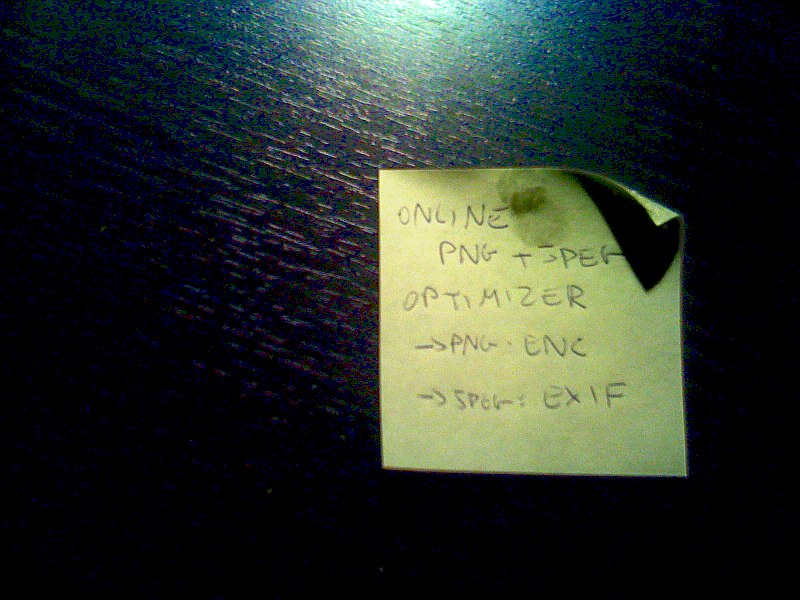 ONLINE
PNG + JPEG
OPTIMIZER
→PNG: ENC
→JPEG: EXIF